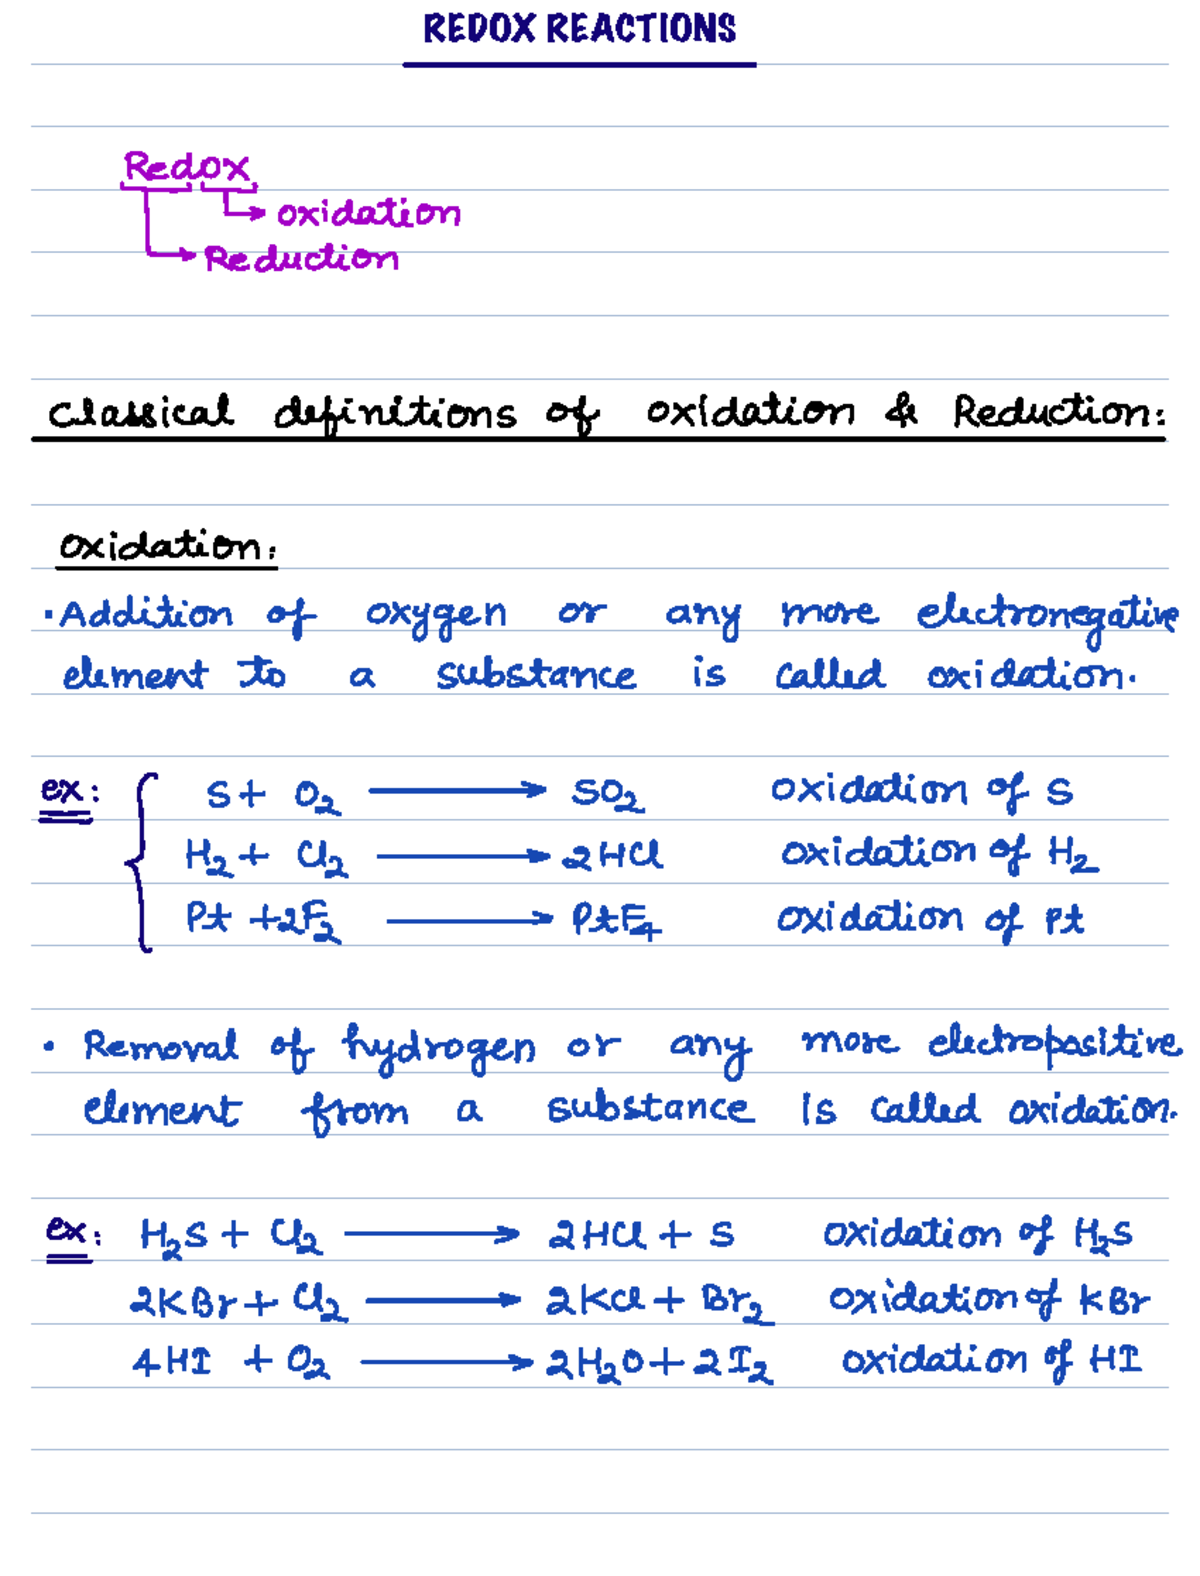 REDOX REACTIONS
Redox
oxidation
Reduction
Classical definitions of oxidation & Reduction:
oxidation:
• Addition of oxygen or any more electronegative
element to a substance is called oxidation.
ex: S + O₂ → SO₂ oxidation of S
H₂ + Cl₂ → 2HCl oxidation of H₂
Pt + 2F₂ → PtF₄ oxidation of Pt
• Removal of hydrogen or any more electropositive
element from a substance is called oxidation.
ex: H₂S + Cl₂ → 2HCl + S oxidation of H₂S
2KBr + Cl₂ → 2KCl + Br₂ oxidation of KBr
4HI + O₂ → 2H₂O + 2I₂ oxidation of HI